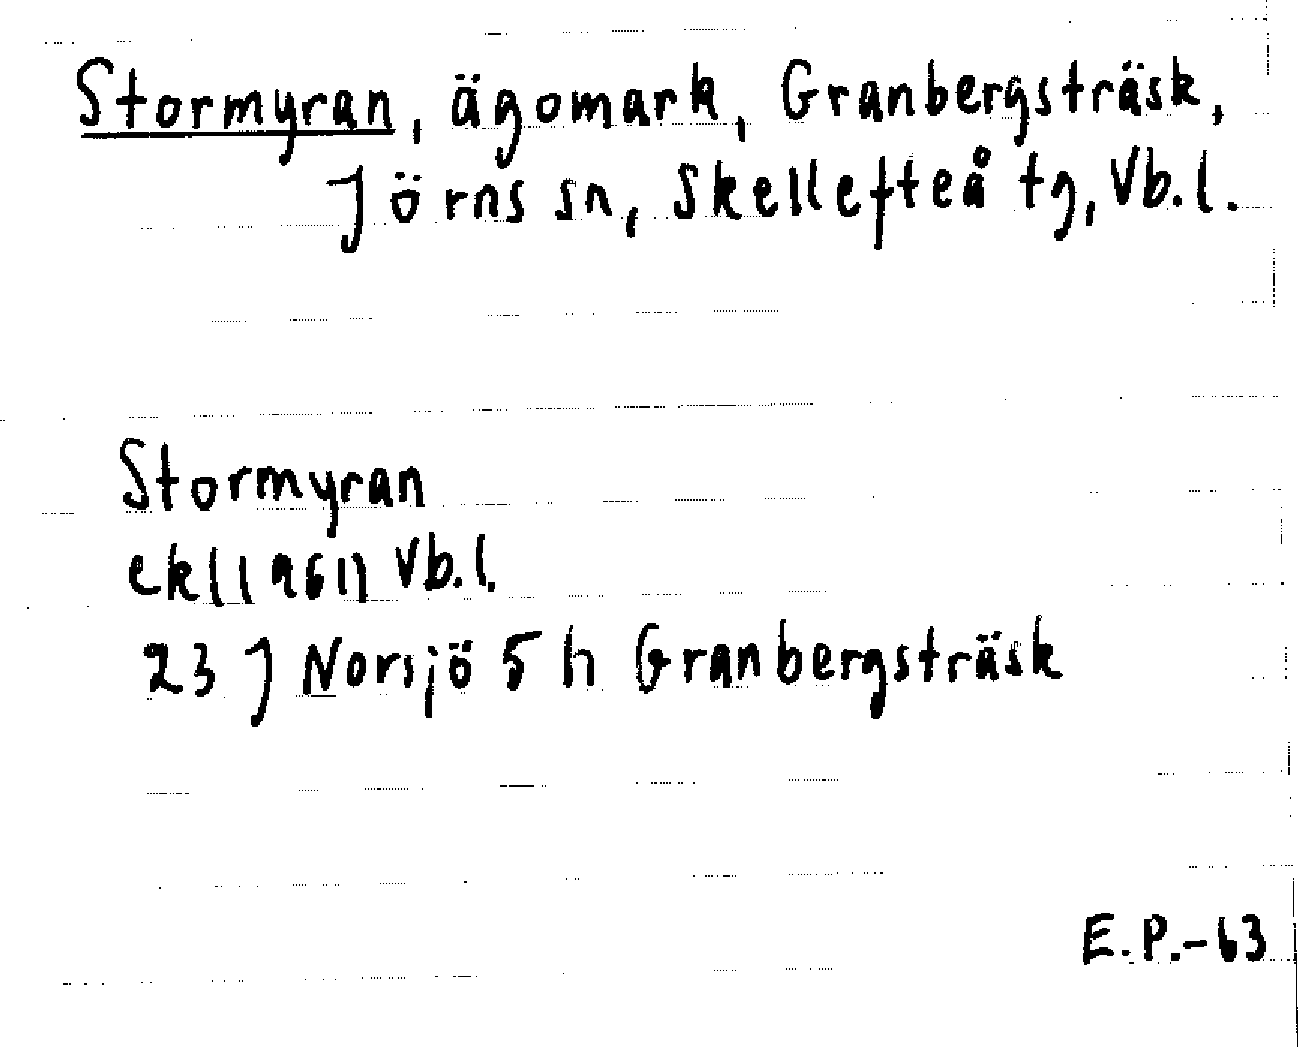 Stormyran, ägomark, Granbergsträsk,
Jörns sn, Skellefteå tg, Vb.l.
Stormyran
ek(1961) Vb.l.
23 J Norsjö 5 h Granbergsträsk
E.P.-63